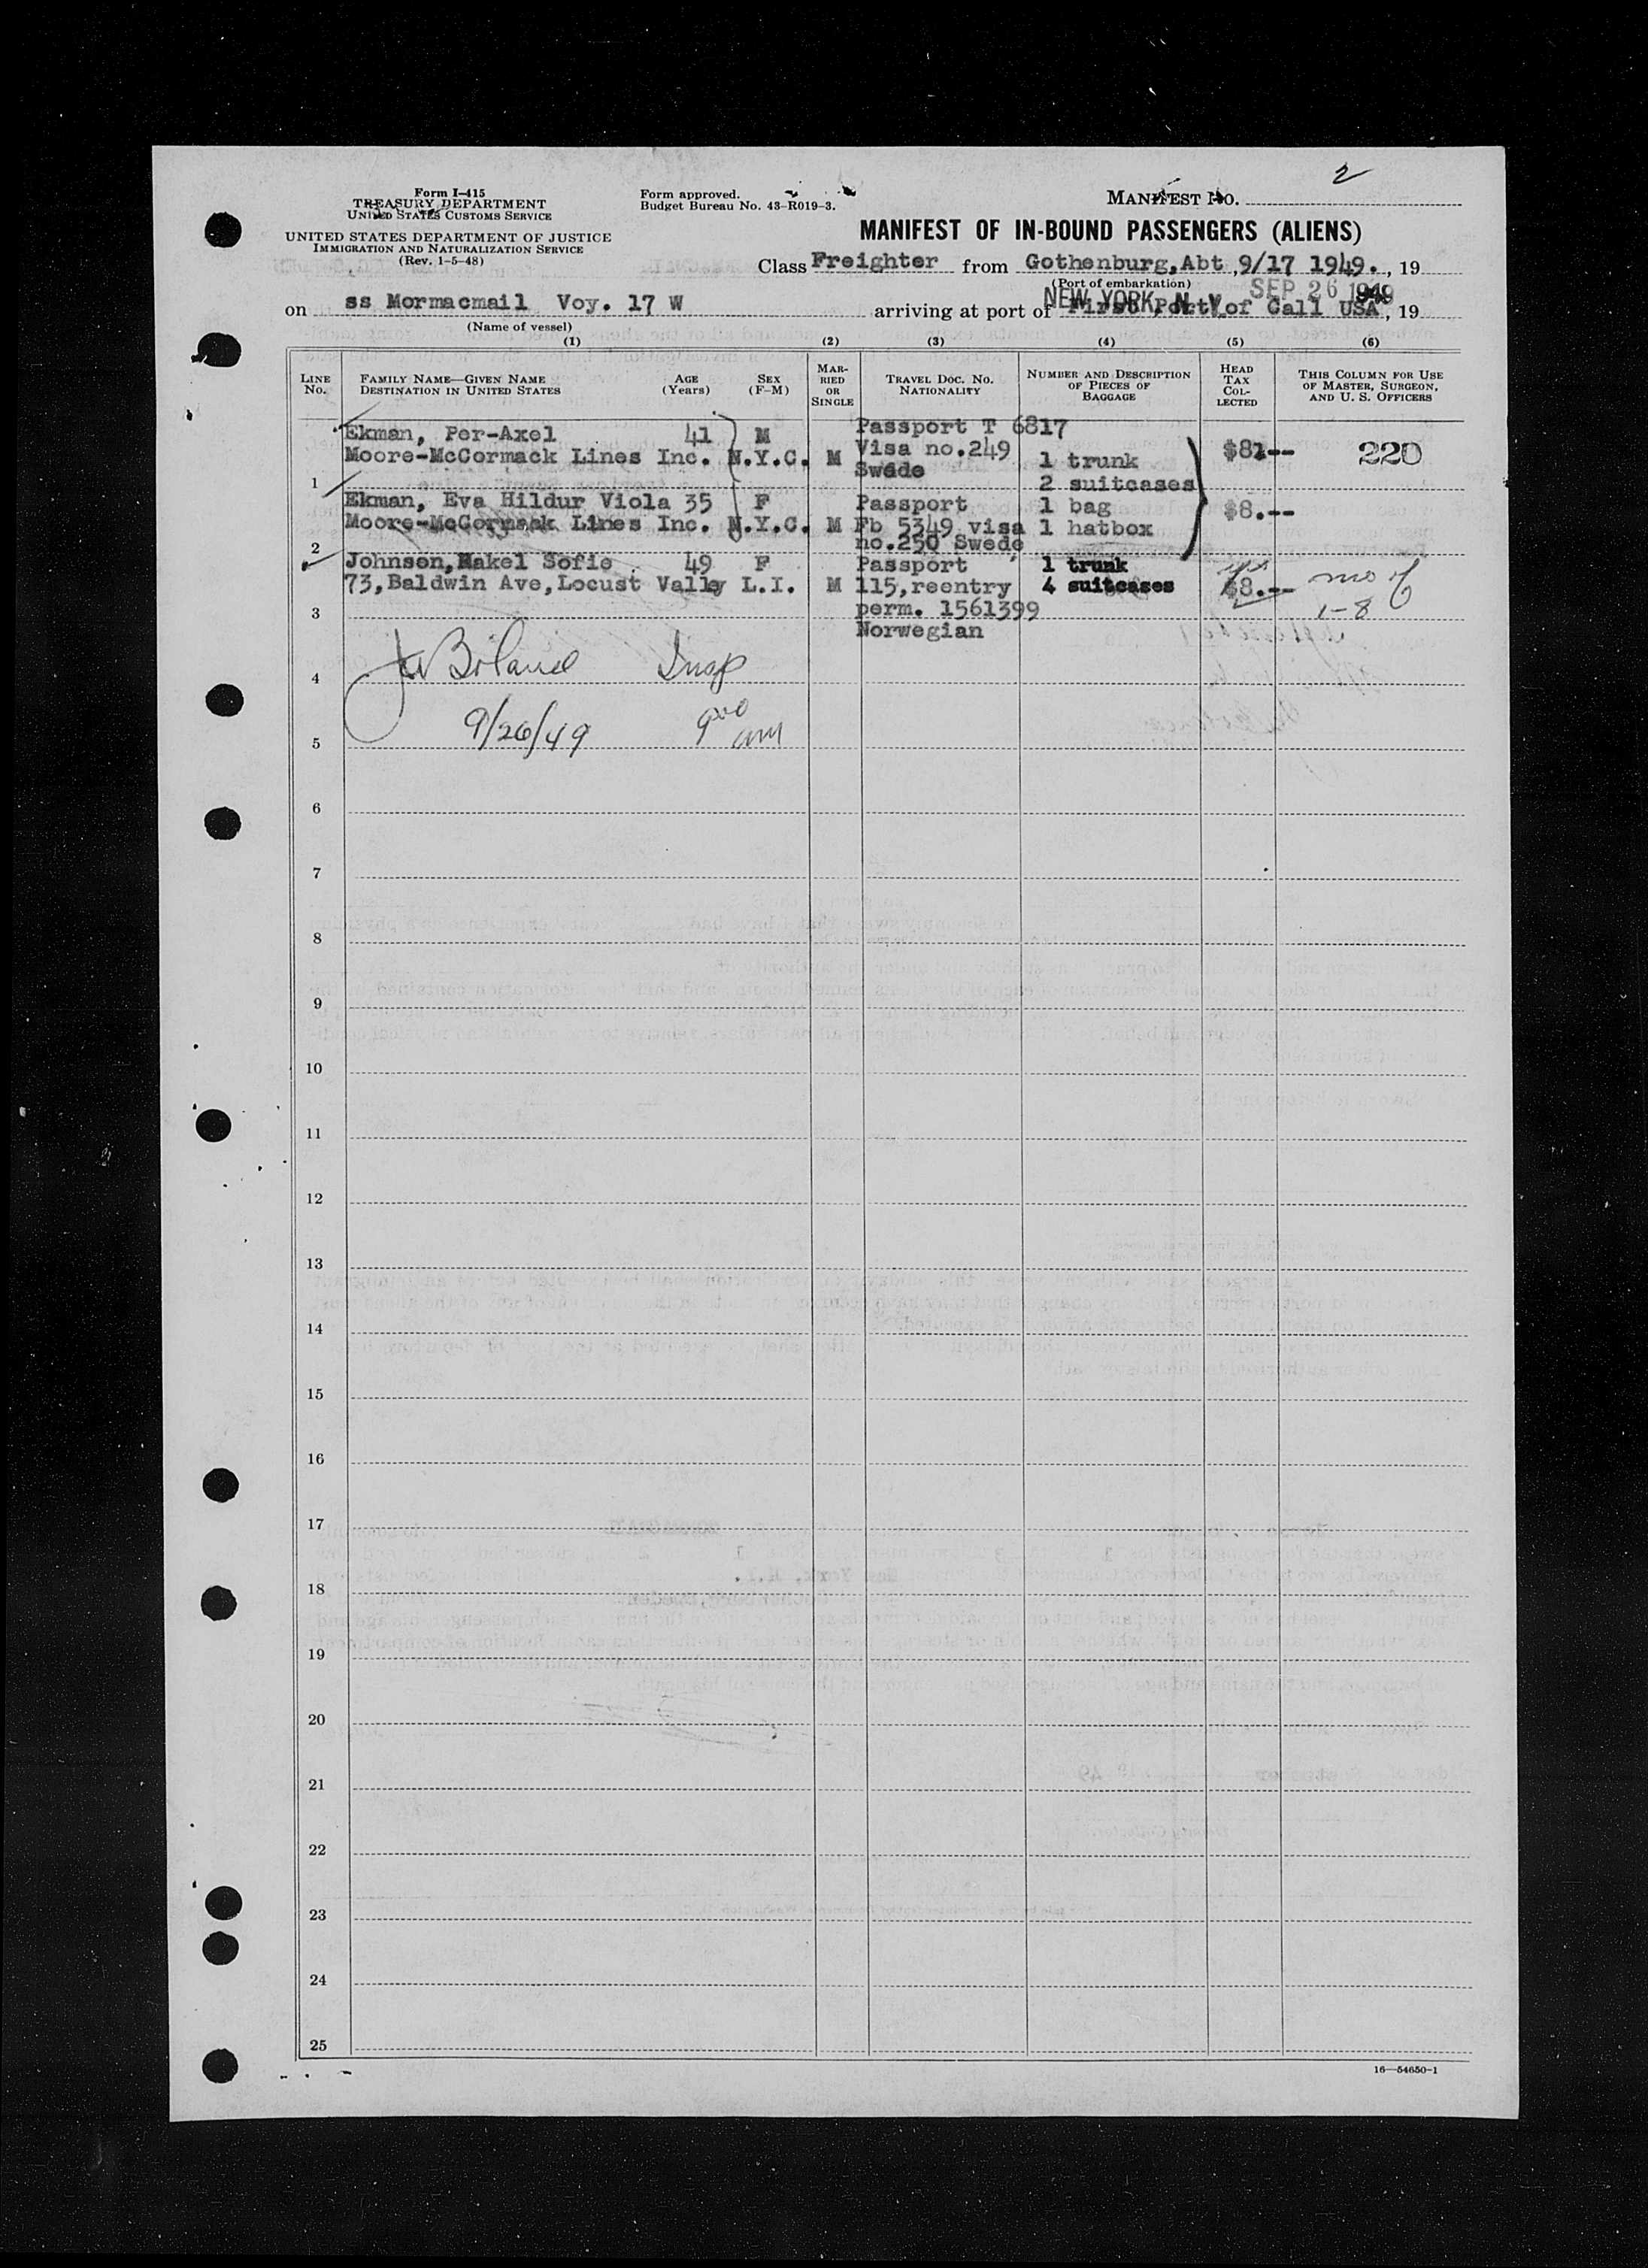 2
Form I-415
TREASURY DEPARTMENT
UNITED STATES CUSTOMS SERVICE
UNITED STATES DEPARTMENT OF JUSTICE
IMMIGRATION AND NATURALIZATION SERVICE
(Rev. 1-5-48)
Form approved.
Budget Bureau No. 43-R019-3.
MANIFEST NO.
MANIFEST OF IN-BOUND PASSENGERS (ALIENS)
Class Freighter from Gothenburg, Abt , 9/17 1949. , 19
(Port of embarkation)
on ss Mormacmail Voy. 17 W arriving at port of First Port of Call USA , 19
NEW YORK, N. Y. SEP 26 1949
(Name of vessel)
(1) (2) (3) (4) (5) (6)
LINE NO.
FAMILY NAME—GIVEN NAME
DESTINATION IN UNITED STATES
AGE (Years)
SEX (F-M)
MARRIED OR SINGLE
TRAVEL DOC. NO. NATIONALITY
NUMBER AND DESCRIPTION OF PIECES OF BAGGAGE
HEAD TAX COLLECTED
THIS COLUMN FOR USE OF MASTER, SURGEON, AND U. S. OFFICERS
Ekman, Per-Axel 41 M Passport T 6817
Moore-McCormack Lines Inc. N.Y.C. M Visa no.249 1 trunk $8.-- 220
1 Swede 2 suitcases
Ekman, Eva Hildur Viola 35 F Passport 1 bag $8.--
Moore-McCormack Lines Inc. N.Y.C. M Fb 5349 visa 1 hatbox
2 no.250 Swede
Johnsen, Rakel Sofie 49 F Passport 1 trunk
73, Baldwin Ave, Locust Valley L.I. M 115, reentry 4 suitcases $8.--
3 perm. 1561399 1-8
Norwegian
4 Insp
5 9/26/49 9 00 am
6
7
8
9
10
11
12
13
14
15
16
17
18
19
20
21
22
23
24
25
16—54650-1